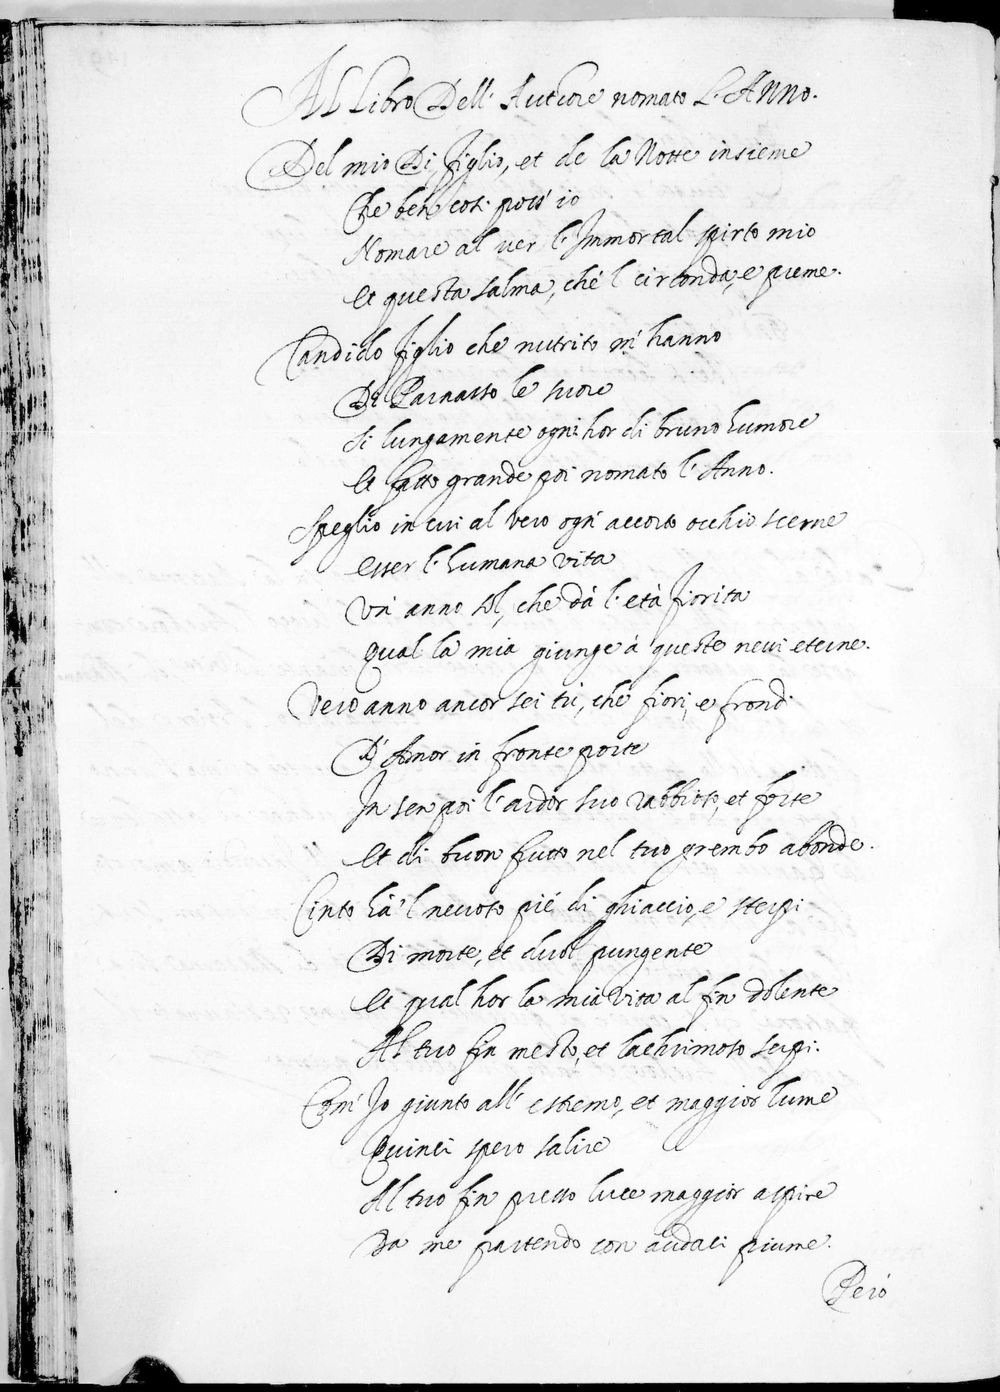 Al Libro Dell' Auttore nomato L'Anno.
Del mio Dì figlio, et de la Notte insieme
Che ben così poss' io
Nomare al ver l'Immortal spirto mio
Et questa salma, che'l circonda, e preme.
Candido figlio che nutrito m' hanno
Di Parnasso le suore
Sì lungamente ogni hor di bruno humore
Et fatto grande poi nomato l'Anno.
Speglio in cui al vero ogni accorto occhio scerne
Esser l'humana vita
Un' anno sol, che dà l'età fiorita
Qual la mia giunge à queste nevi eterne.
Vero anno ancor sei tù, che fiori, e frondi
D'Amor in fronte porte
In sen poi l'ardor suo rabbioso, et forte
Et di buon frutto nel tuo grembo abonde.
Cinto hà'l nevoso piè di ghiaccio, e sterpi
Di morte, et duol pungente
Et qual hor la mia vita al fin dolente
Al tuo fin mesto, et lachrimoso serpi.
Com' Io giunto all' estremo, et maggior lume
Quinci spero salire
Al tuo fin presso luce maggior aspire
Da me partendo con audaci piume.
Però